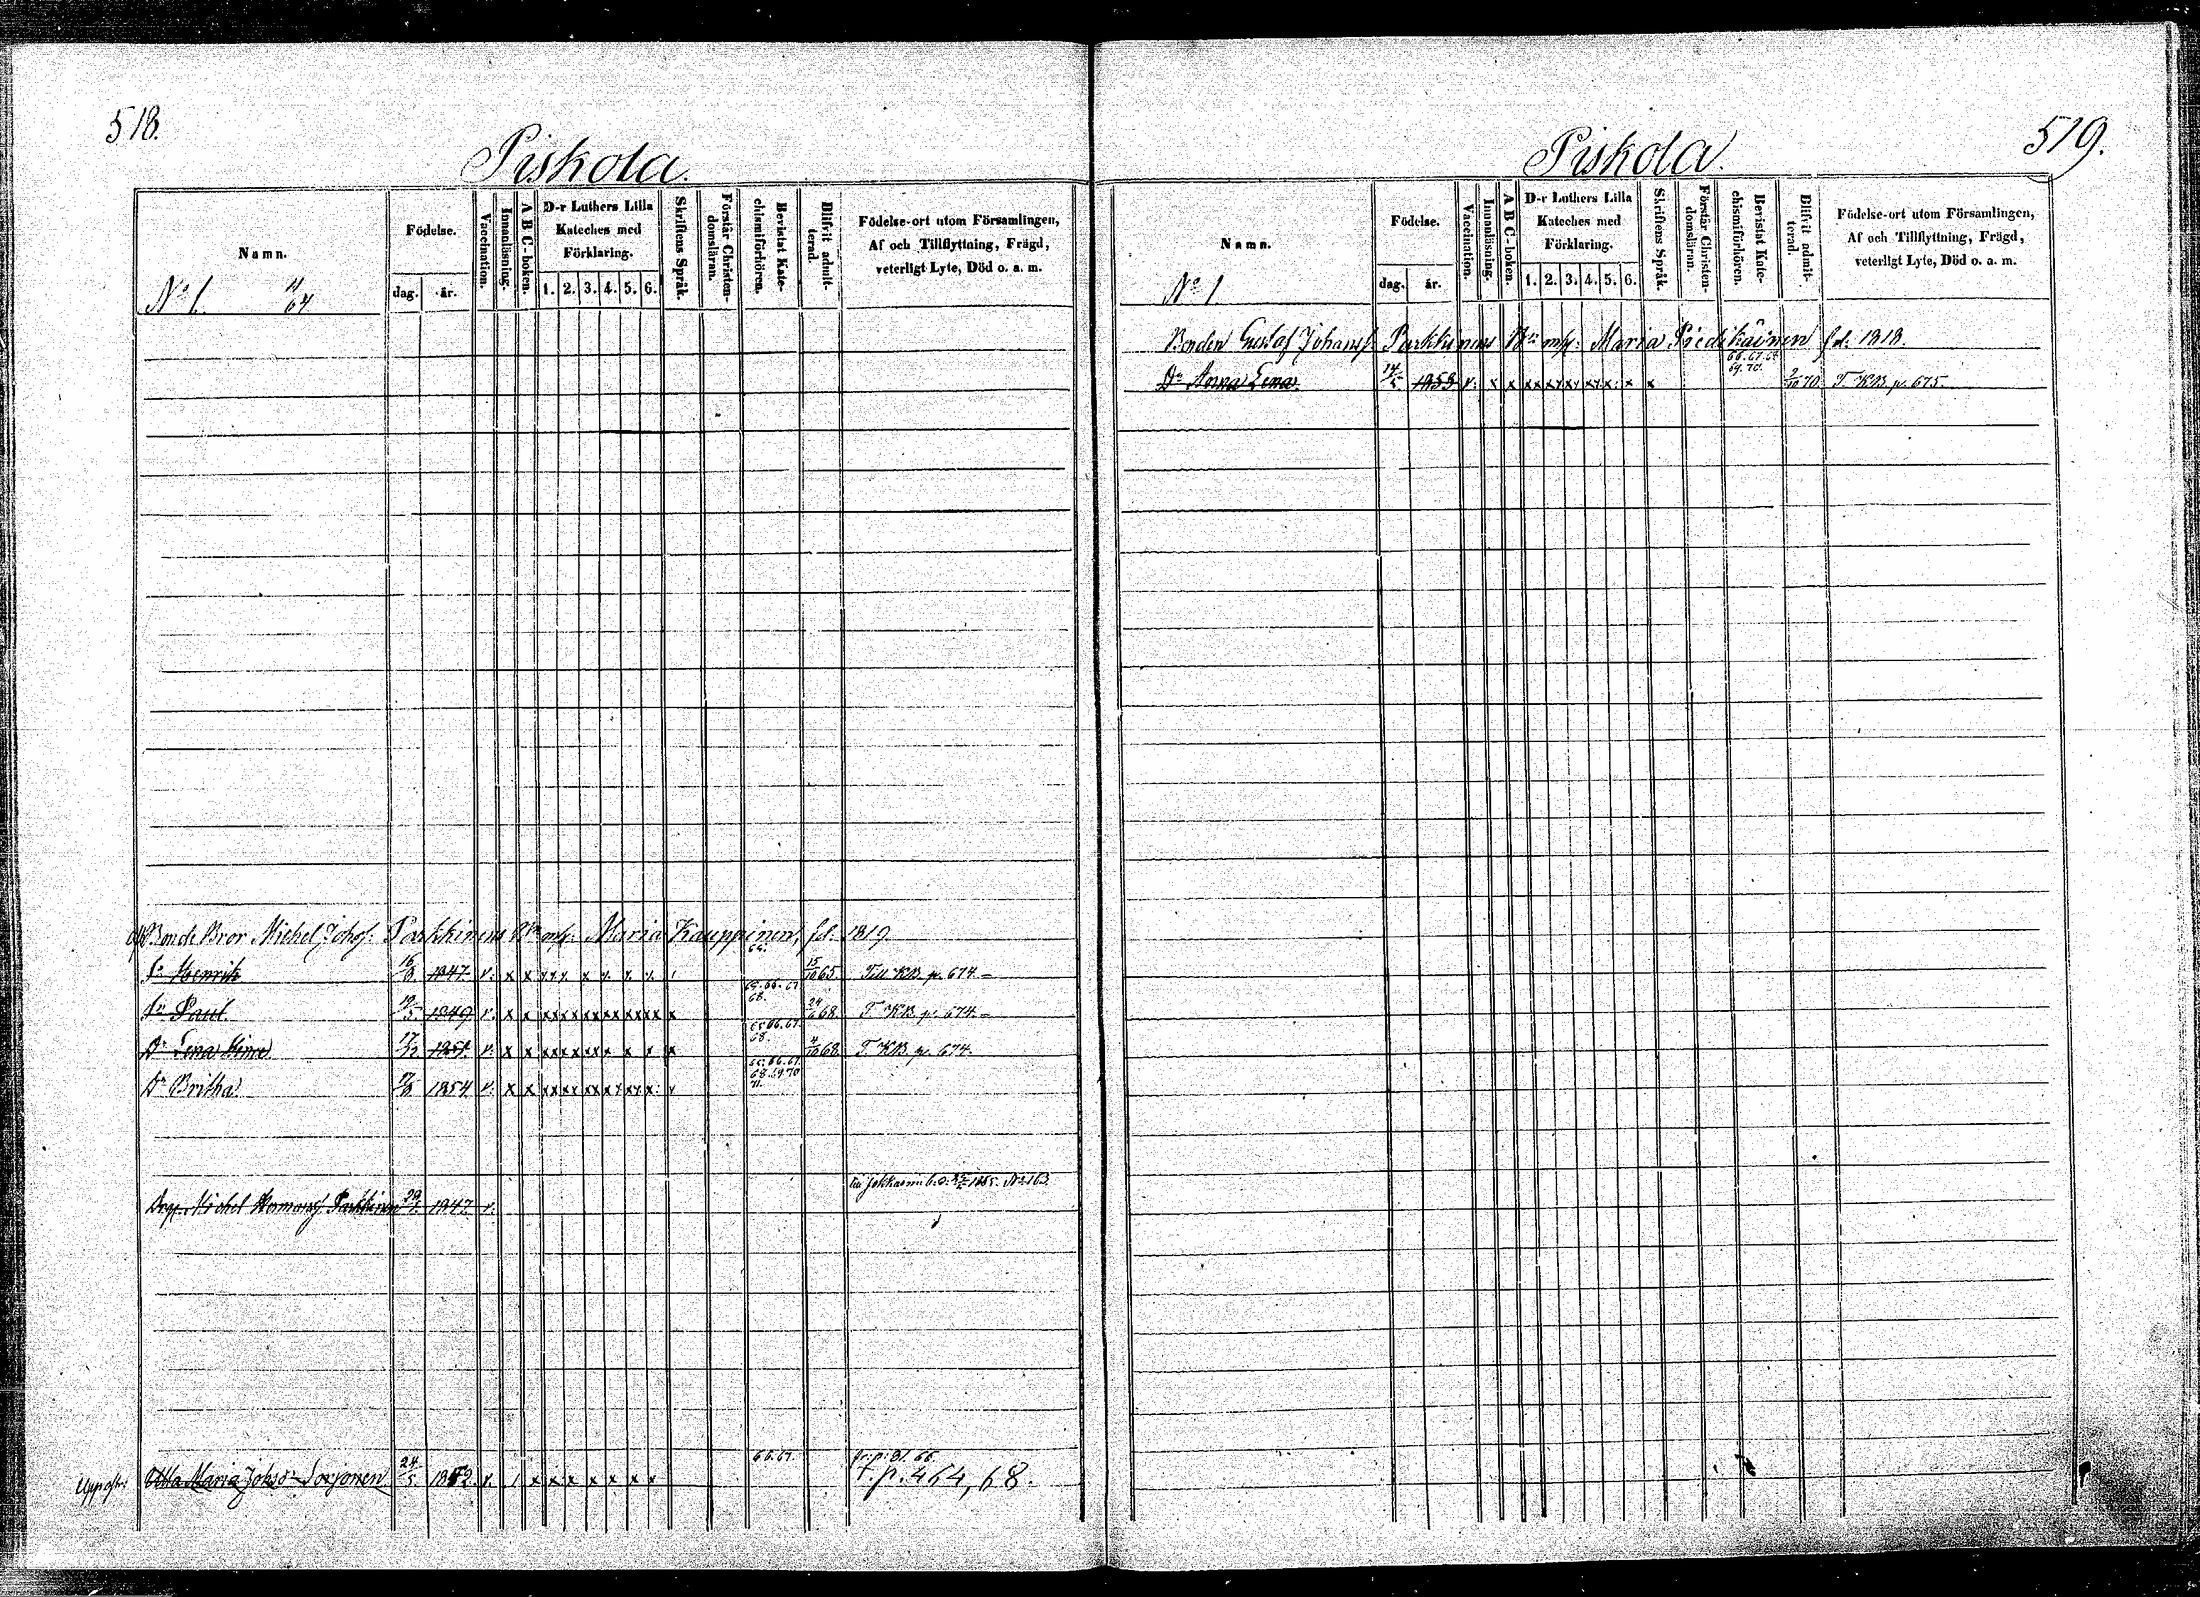 518.
Piskola.
Namn.
Födelse.
dag. år.
Vaccination.
Innanläsning.
A B C-boken.
D-r Luthers Lilla
Kateches med
Förklaring.
1. 2. 3. 4. 5. 6.
Skriftens Språk.
Förstår Christen-
domsläran.
Bevistat Kate-
chismiförhören.
Blifvit admit-
terad.
Födelse-ort utom Församlingen,
Af och Tillflyttning, Frägd,
veterligt Lyte, Död o. a. m.
No 1. 11/64
Bonde Bror Michel Johs: Parkkinens Maria Kauppinen, fd. 1819
64.
Sn Henrik 16/8 1847. v. x x x x x x x x x 15/10 65. Till KB. p. 674.–
65. 66. 67
68.
Sn Paul. 19/5 1849 v. x x xx xx xx xx xx xx x 24/6 68. T. KB. p. 674.–
65 66. 67.
68.
Dr Lena Stina 17/12 1851. v. x x xx xx xx x x x x 4/10 68 T. KB. p. 674.
65. 66. 67
68. 69 70
71.
Dr Britha 17/8 1854 v. x x xx xx xx xx xx x: x
1865. No 163.
Michel Hermanss. Parkkinen 29/ 1847. v.
66. 67. fr. p. 81. 66.
Uppostr: Ulla Maria Johsdr Sorjonen 24/5 1852. v. 1 x x x x x x x T. p. 464, 68.
519.
Piskola.
Namn.
Födelse.
dag. år.
Vaccination.
Innanläsning.
A B C-boken.
D-r Luthers Lilla
Kateches med
Förklaring.
1. 2. 3. 4. 5. 6.
Skriftens Språk.
Förstår Christen-
domsläran.
Bevistat Kate-
chismiförhören.
Blifvit admit-
terad.
Födelse-ort utom Församlingen,
Af och Tillflyttning, Frägd,
veterligt Lyte, Död o. a. m.
No 1.
Bonden Gustaf Johanss. Parkkinens Maria fd. 1818.
66. 67. 68
69. 70.
Dr Anna Lena 14/5 1853 v. x x xx xx xx xx x: x x 2/10 70 T. KB. p. 675.